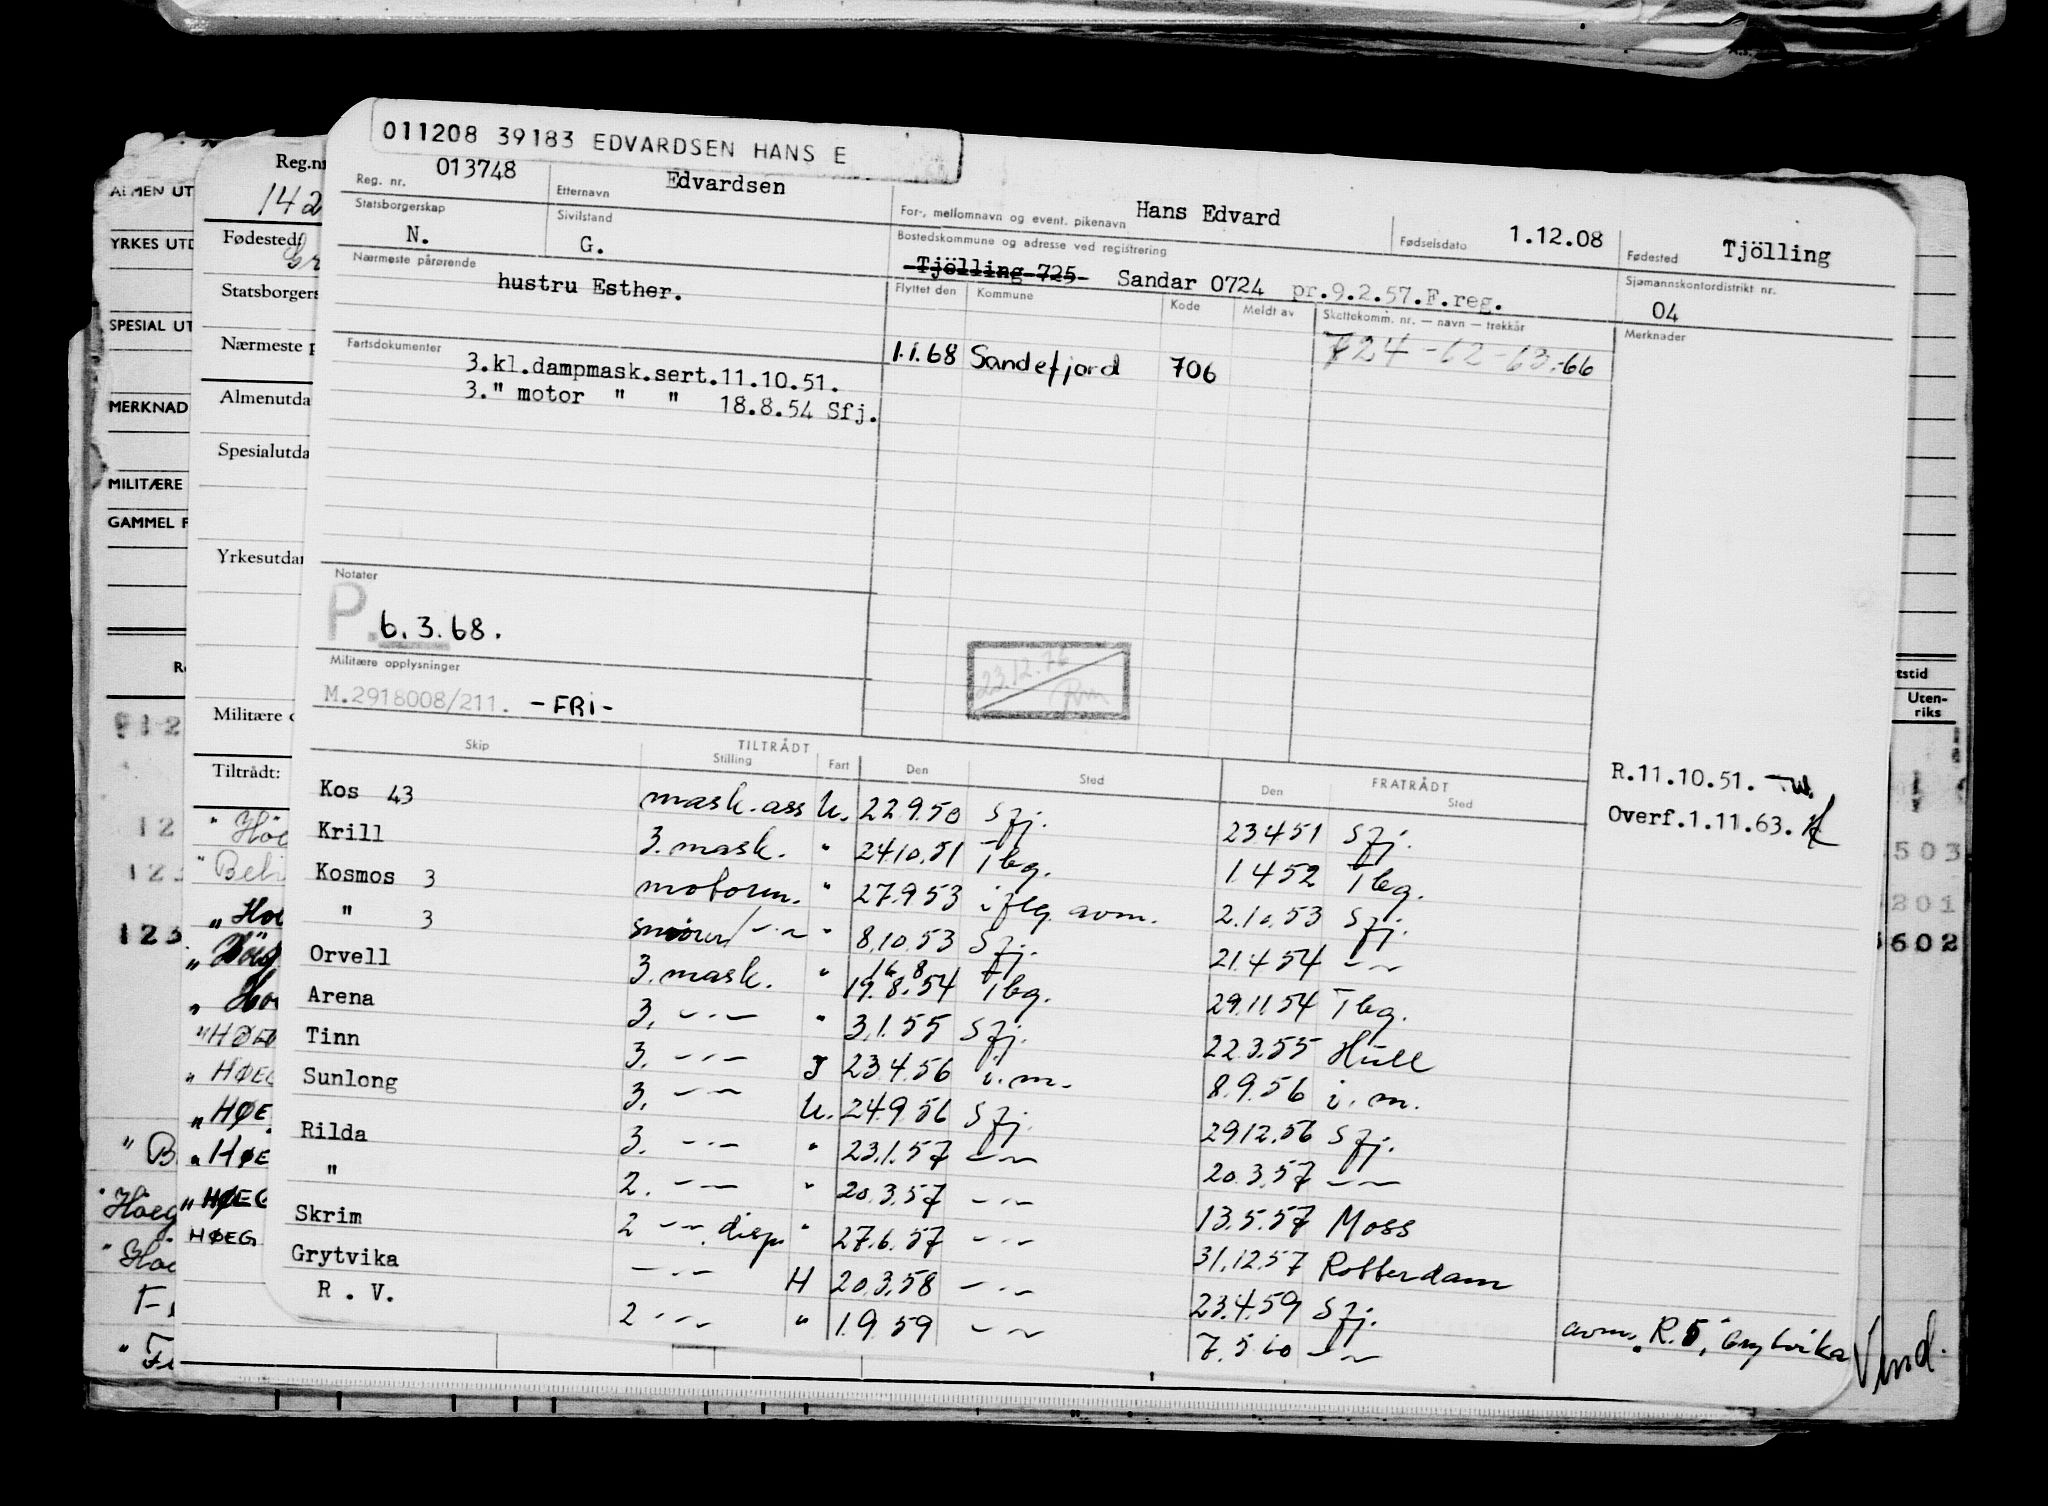 011208 39183 EDVARDSEN HANS E
Reg. nr. 013748
Etternavn Edvardsen
For-, mellomnavn og event. pikenavn Hans Edvard
Fødselsdato 1.12.08
Fødested Tjölling
Statsborgerskap N.
Sivilstand G.
Bostedskommune og adresse ved registrering
Tjölling 725 Sandar 0724 pr.9.2.57.F.reg.
Sjømannskontordistrikt nr. 04
Nærmeste pårørende hustru Esther.
Flyttet den Kommune Kode Meldt av Skattekomm. nr. — navn — trekkår Merknader
1.1.68 Sandefjord 706 724-62-63-66
Fartsdokumenter
3.kl.dampmask.sert.11.10.51.
3." motor " " 18.8.54 Sfj.
Notater
P. 6.3.68.
23.12.76
Militære opplysninger
M.2918008/211. -FRI-
R.11.10.51.
Overf.1.11.63.
TILTRÅDT FRATRÅDT
Skip Stilling Fart Den Sted Den Sted
Kos 43 mask.ass U. 22.9.50 Sfj. 23.4.51 Sfj.
Krill 3. mask. " 24.10.51 Tbg. 1.4.52 Tbg.
Kosmos 3 motorm. " 27.9.53 i flg. avm. 2.10.53 Sfj.
" 3 smører/-"- " 8.10.53 Sfj. 21.4.54 -"-
Orvell 3. mask. " 19.8.54 Tbg. 29.11.54 Tbg.
Arena 3. -"- " 3.1.55 Sfj. 22.3.55 Hull
Tinn 3. -"- J 23.4.56 i.m. 8.9.56 i.m.
Sunlong 3. -"- U. 24.9.56 Sfj. 29.12.56 Sfj.
Rilda 3. -"- " 23.1.57 -"- 20.3.57 -"-
" 2. -"- " 20.3.57 -"- 13.5.57 Moss
Skrim 2 -"- disp " 27.6.57 -"- 31.12.57 Rotterdam
Grytvika -"- H 20.3.58 -"- 23.4.59 Sfj.
R . V. 2 -"- " 1.9.59 -"- 7.5.60 -"- avm. R.5, Grytvika
Vend.
Reg.nr
142
Fødested:
Statsborgers
Nærmeste p
Almenutda
Spesialutda
Yrkesutdan
Militære o
Tiltrådt:
ALMEN UT
YRKES UTD
SPESIAL UT
MERKNAD
MILITÆRE
GAMMEL F
tstid
Uten-
riks
503
201
602
HØEG